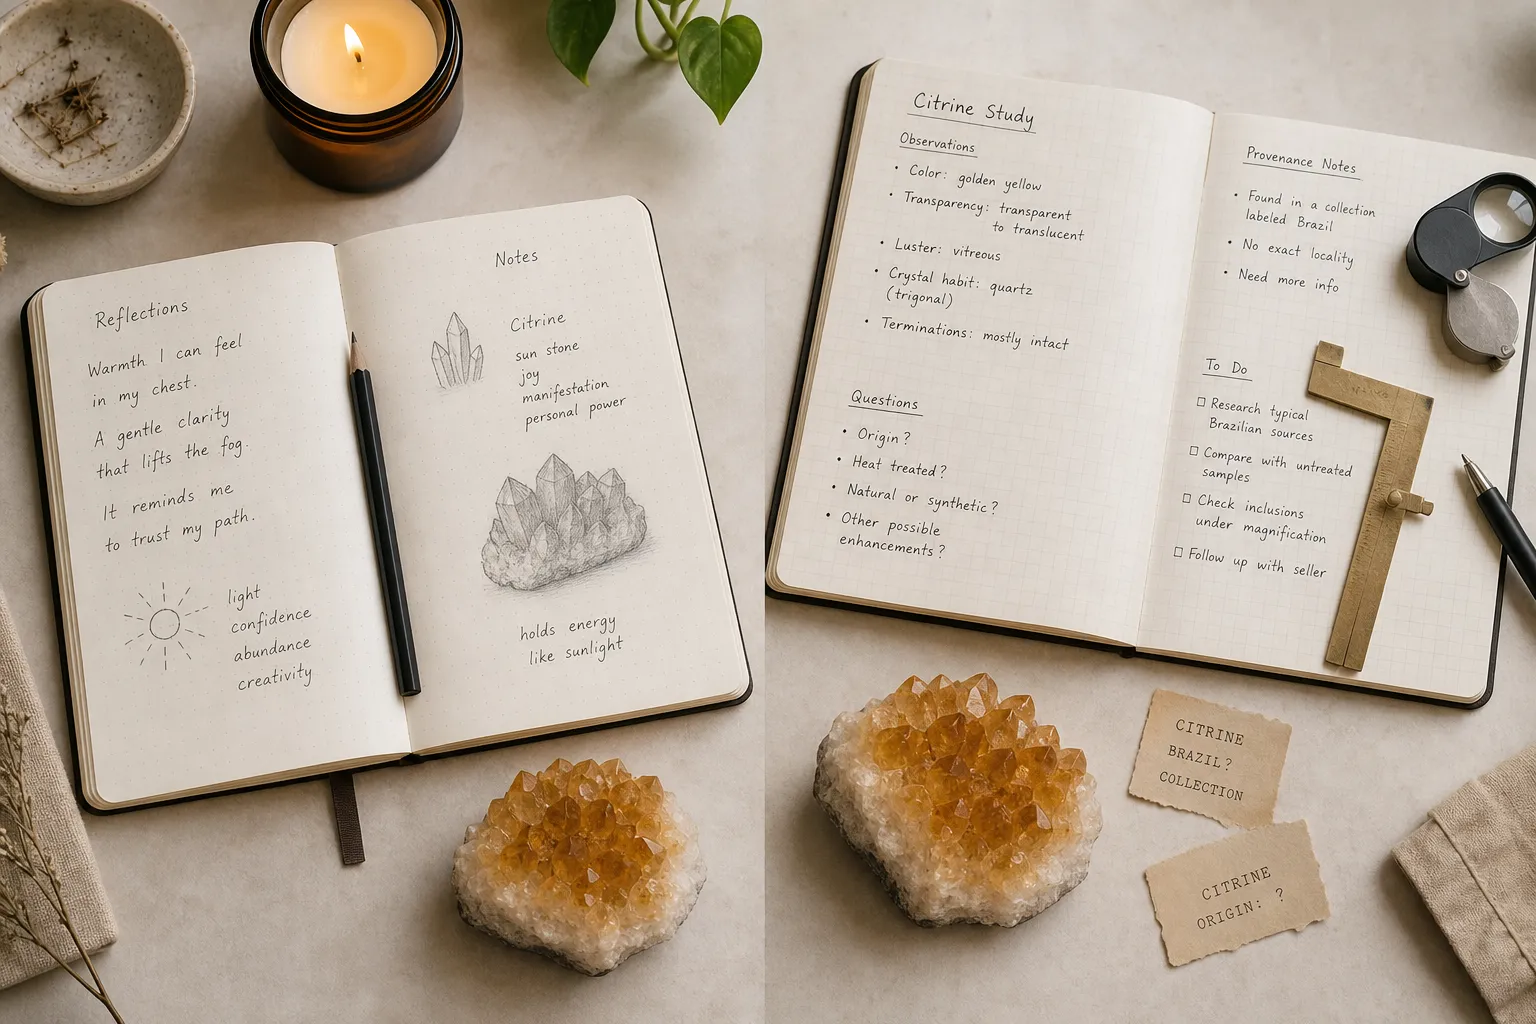 Reflections
Warmth I can feel
in my chest.
A gentle clarity
that lifts the fog.
It reminds me
to trust my path.
light
confidence
abundance
creativity
Notes
Citrine
sun stone
joy
manifestation
personal power
holds energy
like sunlight
Citrine Study
Observations
• Color: golden yellow
• Transparency: transparent
to translucent
• Luster: vitreous
• Crystal habit: quartz
(trigonal)
• Terminations: mostly intact
Questions
• Origin?
• Heat treated?
• Natural or synthetic?
• Other possible
enhancements?
Provenance Notes
• Found in a collection
labeled Brazil
• No exact locality
• Need more info
To Do
☐ Research typical
Brazilian sources
☐ Compare with untreated
samples
☐ Check inclusions
under magnification
☐ Follow up with seller
CITRINE
BRAZIL?
COLLECTION
CITRINE
ORIGIN: ?